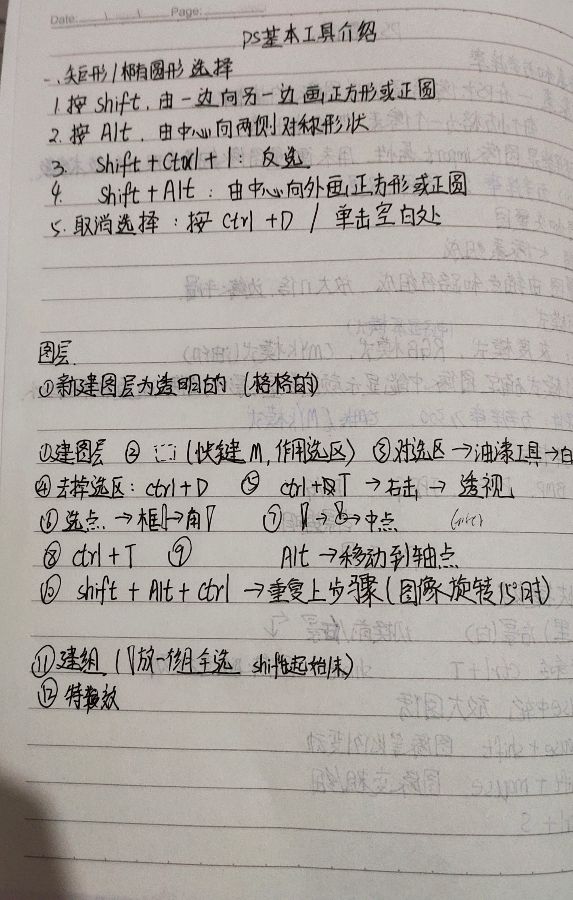 Date: Page:
PS基本工具介绍
一、矩形/椭圆形选择
1.按shift,由一边向另一边画正方形或正圆
2.按Alt,由中心向两侧对称形状
3. shift+Ctrl+I:反选
4. shift+Alt:由中心向外画正方形或正圆
5.取消选择:按Ctrl+D / 单击空白处
图层
①新建图层为透明的(格格的)
①建图层 ② (快键M,作用选区) ③对选区→油漆工具→白
④去掉选区:ctrl+D ⑤ ctrl+T→右击→透视
⑥选点→框→角 ⑦ → →中点
⑧ctrl+T ⑨ Alt→移动到轴点
⑩ shift+Alt+ctrl→重复上步骤(图像旋转15°时)
⑪建组(放一组全选 shift起始/末)
⑫特效